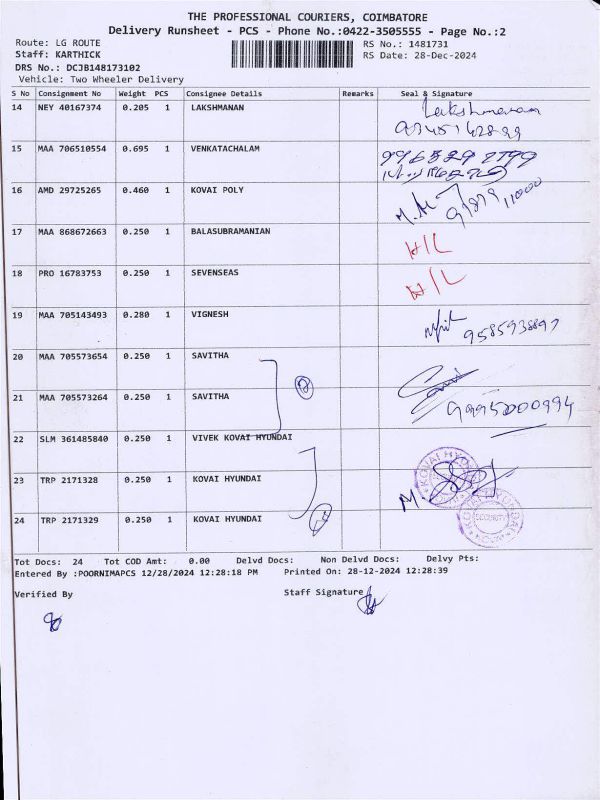 THE PROFESSIONAL COURIERS, COIMBATORE
Delivery Runsheet - PCS - Phone No.:0422-3505555 - Page No.:2
Route: LG ROUTE
RS No.: 1481731
Staff: KARTHICK
RS Date: 28-Dec-2024
DRS No.: DCJB148173102
Vehicle: Two Wheeler Delivery
S No Consignment No Weight PCS Consignee Details Remarks Seal & Signature
14 NEY 40167374 0.205 1 LAKSHMANAN Lakshmanan
15 MAA 706510554 0.695 1 VENKATACHALAM
16 AMD 29725265 0.460 1 KOVAI POLY
17 MAA 868672663 0.250 1 BALASUBRAMANIAN H/L
18 PRO 16783753 0.250 1 SEVENSEAS H/L
19 MAA 705143493 0.280 1 VIGNESH
20 MAA 705573654 0.250 1 SAVITHA
21 MAA 705573264 0.250 1 SAVITHA
22 SLM 361485840 0.250 1 VIVEK KOVAI HYUNDAI
23 TRP 2171328 0.250 1 KOVAI HYUNDAI
24 TRP 2171329 0.250 1 KOVAI HYUNDAI
KOVAI HYUNDAI
SECURITY
Tot Docs: 24 Tot COD Amt: 0.00 Delvd Docs: Non Delvd Docs: Delvy Pts:
Entered By :POORNIMAPCS 12/28/2024 12:28:18 PM Printed On: 28-12-2024 12:28:39
Verified By
Staff Signature